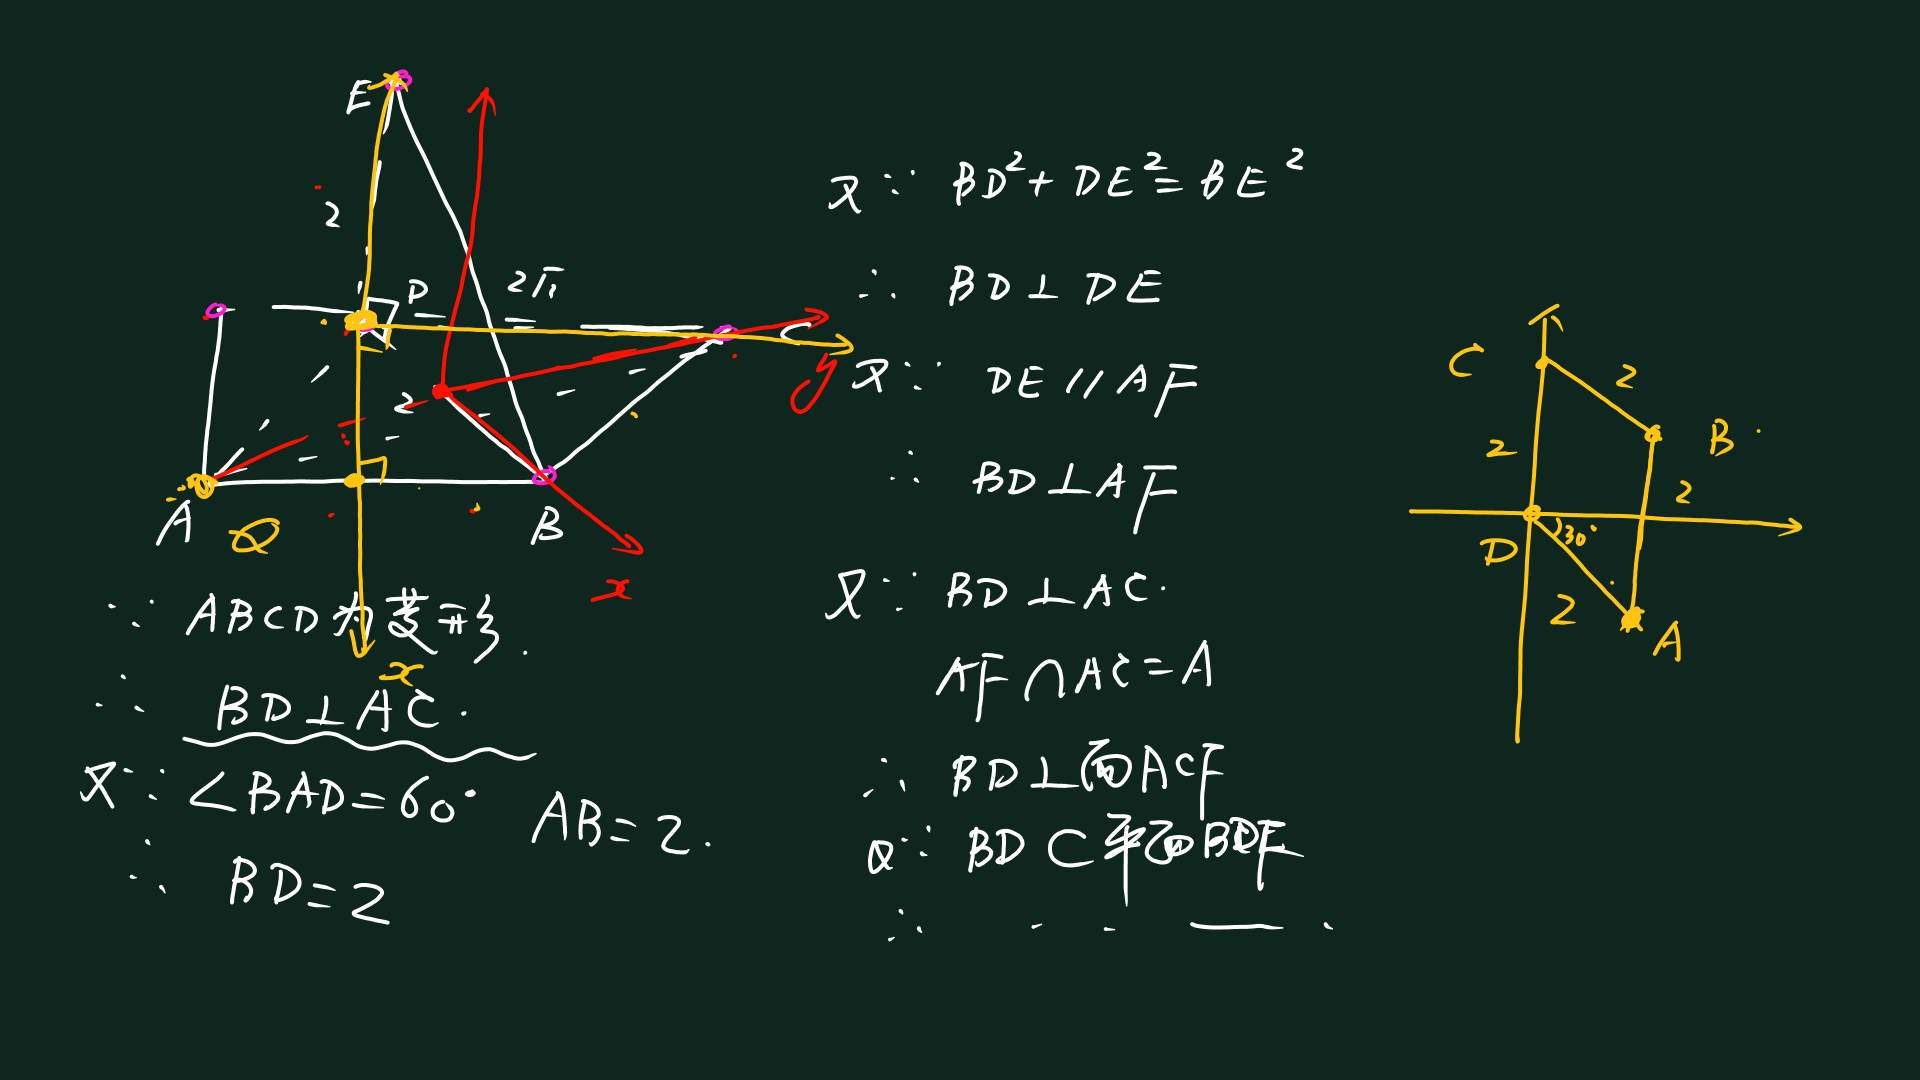 E
2
D
2√2
C
y
2
A
Q
B
x
x
∵ ABCD为菱形.
∴ BD⊥AC.
又∵ ∠BAD=60° AB=2.
∴ BD=2
又∵ BD²+DE²=BE²
∴ BD⊥DE
又∵ DE//AF
∴ BD⊥AF
又∵ BD⊥AC.
AF∩AC=A
∴ BD⊥面ACF
又∵ BD⊂平面BDE
∴
C
2
B
2
2
D
30°
2
A